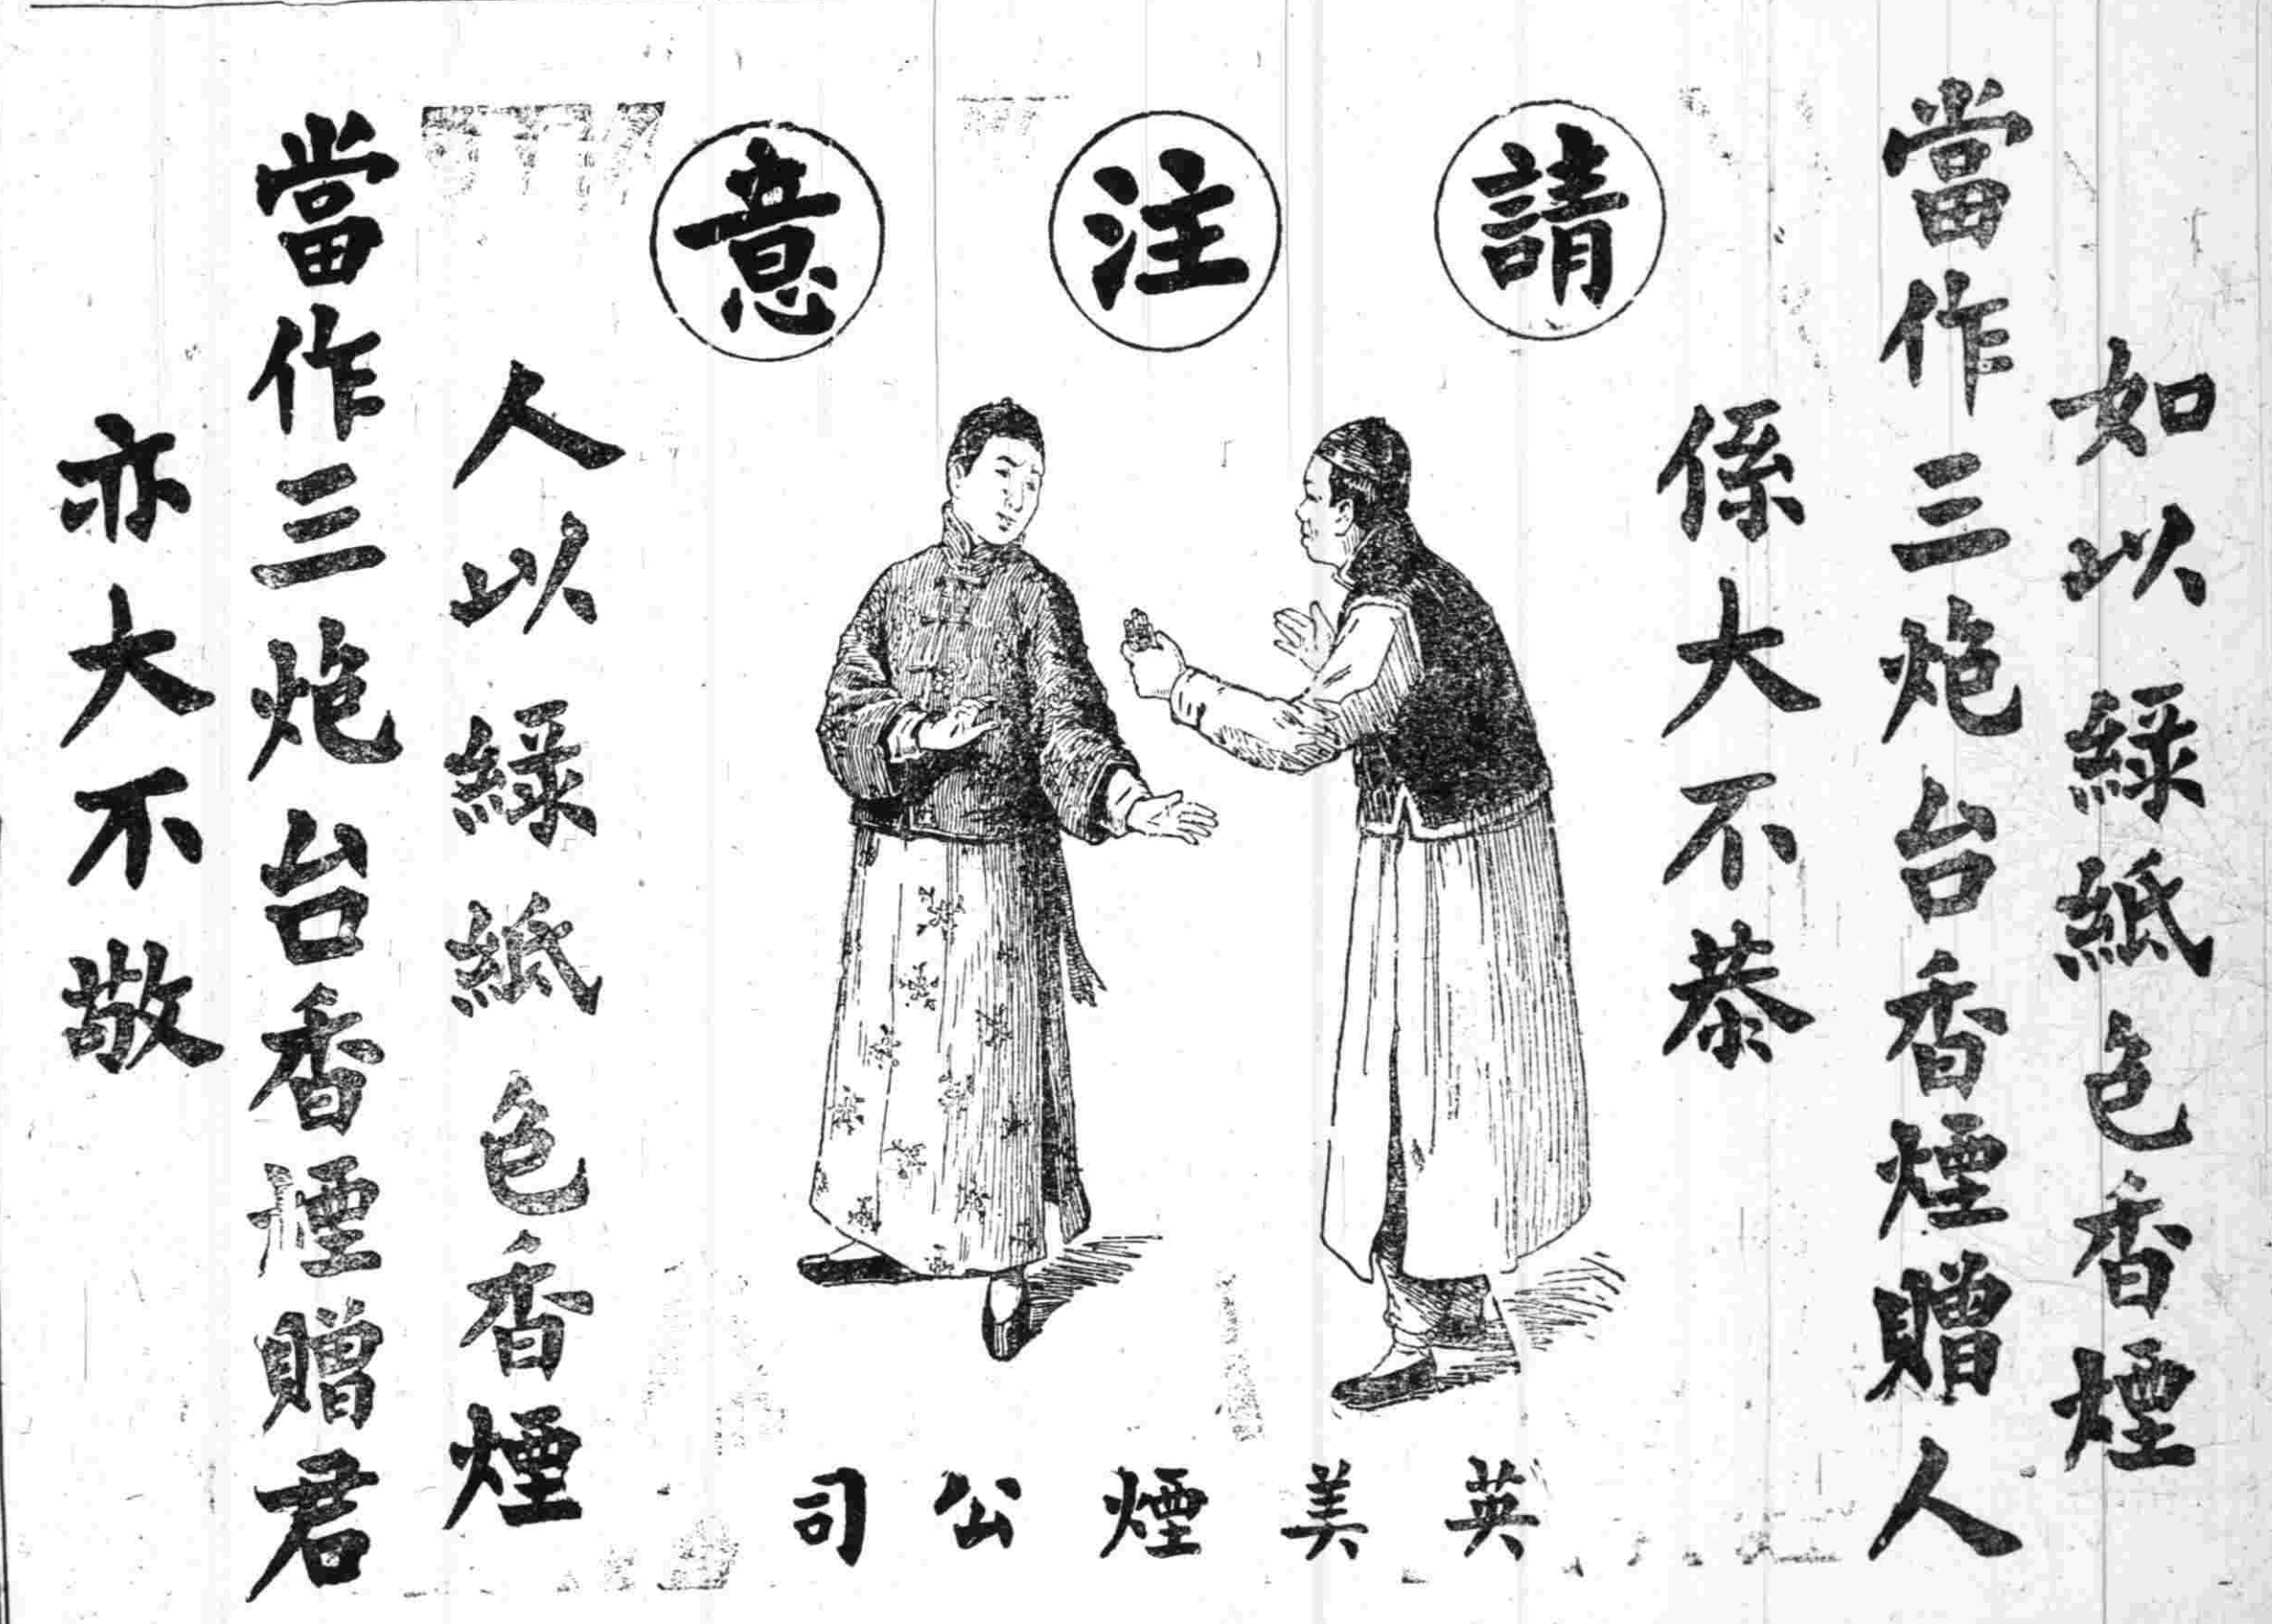 請注意
如以綠紙色香煙
當作三炮台香煙贈人
係大不恭
人以綠紙色香煙
當作三炮台香煙贈君
亦大不敬
英美煙公司